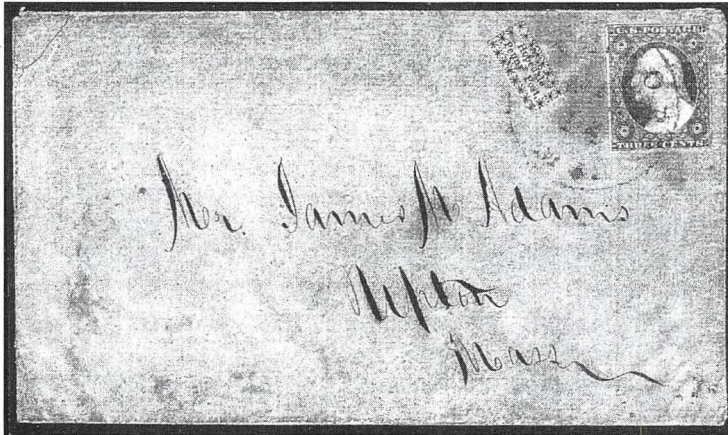 U.S. POSTAGE
THREE CENTS
Mr. James M Adams
Upton
Mass